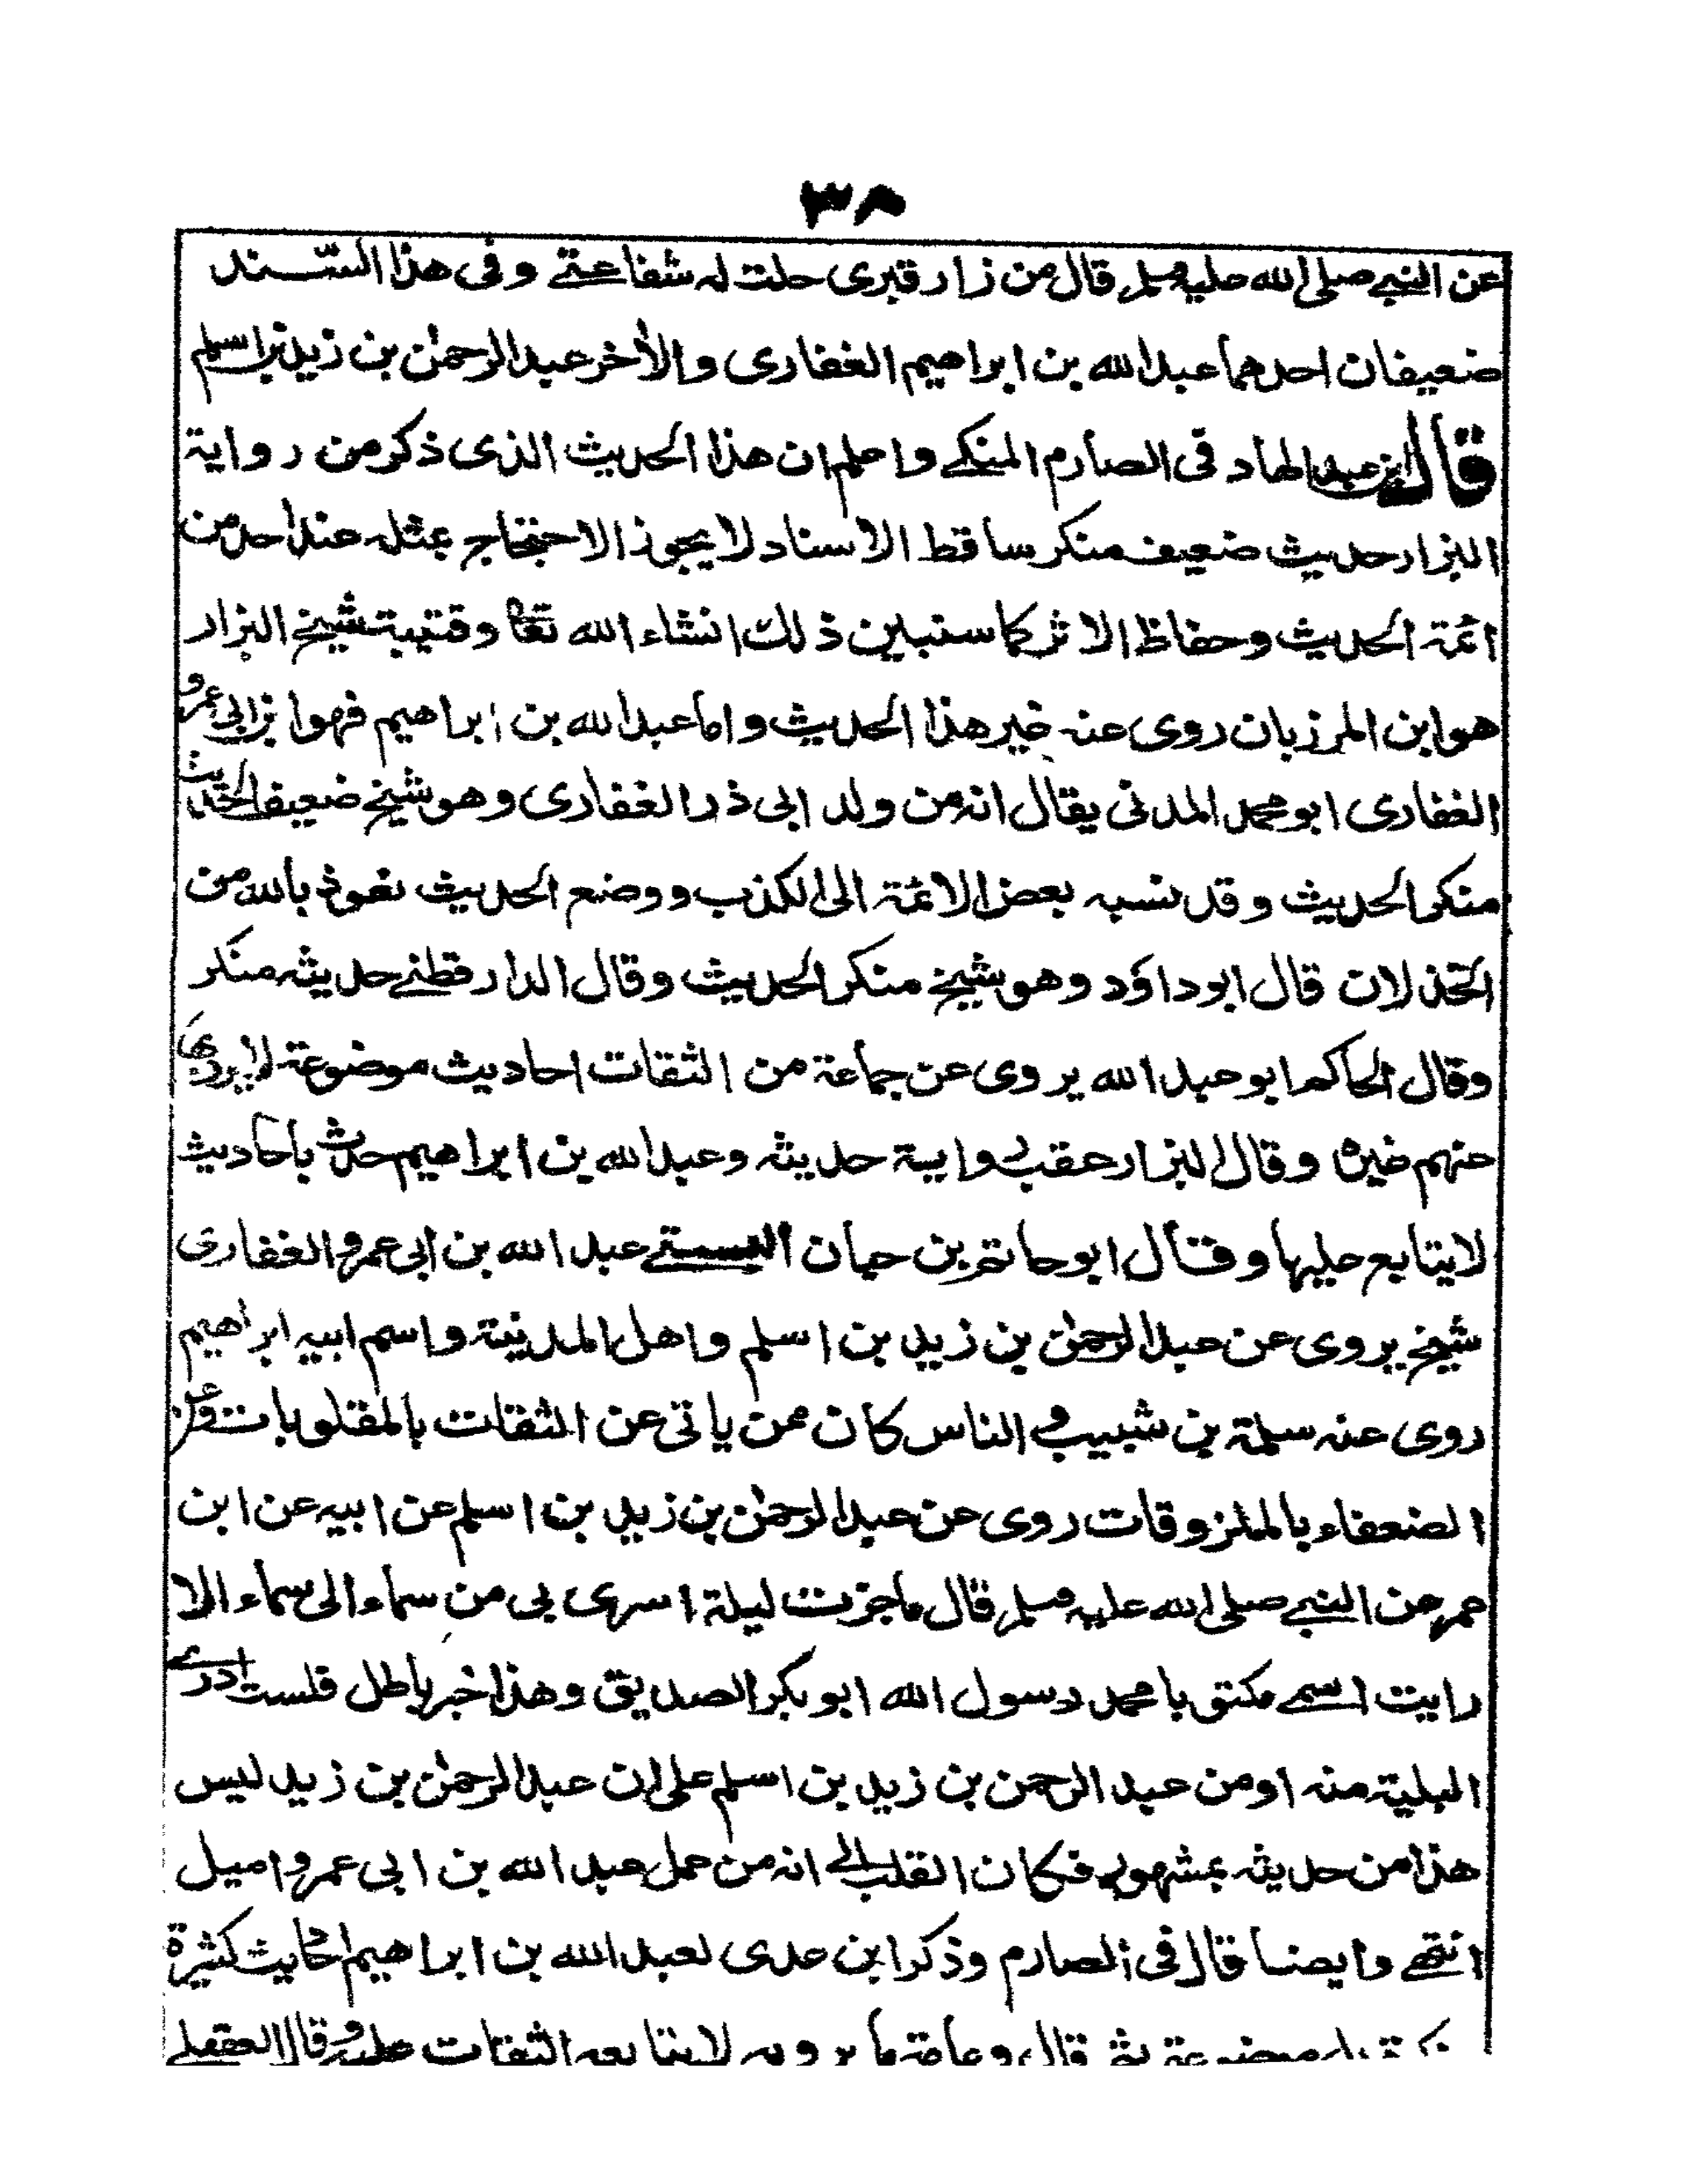 ٣٨
عن النبي صلى الله عليه وسلم قال من زار قبرى حلت له شفاعتے وفى هذا السند
ضعيفان احدهما عبد الله بن ابراهيم الغفارى والأخر عبد الرحمٰن بن زيد بن اسلم
قال ابن عبد الهاد فى الصارم المنكے واعلم ان هذا الحديث الذى ذكر من رواية
البزار حديث ضعيف منكر ساقط الاسناد لا يجوز الاحتجاج بمثله عند احد من
ائمة الحديث وحفاظ الاثر كما سنبين ذلك انشاء الله تعا وقتيبة شيخ البزار
هو ابن المرزبان روى عنه غير هذا الحديث واما عبد الله بن ابراهيم فهو ابن ابى عمرو
الغفارى ابو محمد المدنى يقال انه من ولد ابى ذر الغفارى وهو شيخ ضعيف الحديث
منكر الحديث وقد نسبه بعض الائمة الى الكذب ووضع الحديث نعوذ بالله من
الخذلان قال ابو داؤد وهو شيخ منكر الحديث وقال الدارقطنے حديثه منكر
وقال الحاكم ابو عبد الله يروى عن جماعة من الثقات احاديث موضوعة لا يرويها
عنهم غيره وقال البزار عقب رواية حديثه وعبد الله بن ابراهيم حدث باحاديث
لا يتابع عليها وقال ابو حاتم بن حبان البستے عبد الله بن ابى عمرو الغفارى
شيخ يروى عن عبد الرحمٰن بن زيد بن اسلم واهل المدينة واسم ابيه ابراهيم
روى عنه سلمة بن شبيب و الناس كان ممن ياتى عن الثقات بالمقلوبات وعن
الضعفاء بالملزوقات روى عن عبد الرحمٰن بن زيد بن اسلم عن ابيه عن ابن
عمر عن النبے صلى الله عليه وسلم قال ما جزت ليلة اسرى بى من سماء الى سماء الا
رايت اسمے مكتوبا محمد رسول الله ابو بكر الصديق وهذا خبر باطل فلست ادرے
البلية منه او من عبد الرحمن بن زيد بن اسلم على ان عبد الرحمٰن بن زيد ليس
هذا من حديثه بمشهور فكان القلب الى انه من عمل عبد الله بن ابى عمرو اميل
انتهے وايضا قال فى الصارم وذكر ابن عدى لعبد الله بن ابراهيم احاديث كثيرة
قال وعامة ما يرويه لا يتابعه الثقات عليه وقال العقيلے